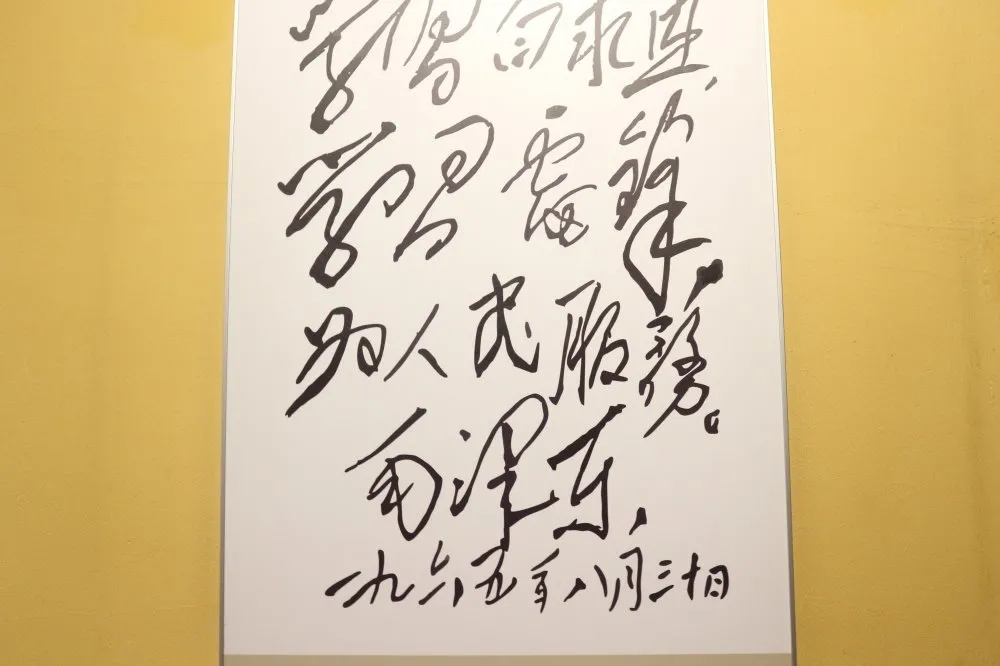 学习白求恩,
学习雷锋。
为人民服務。
毛泽东
一九六五年八月三十日